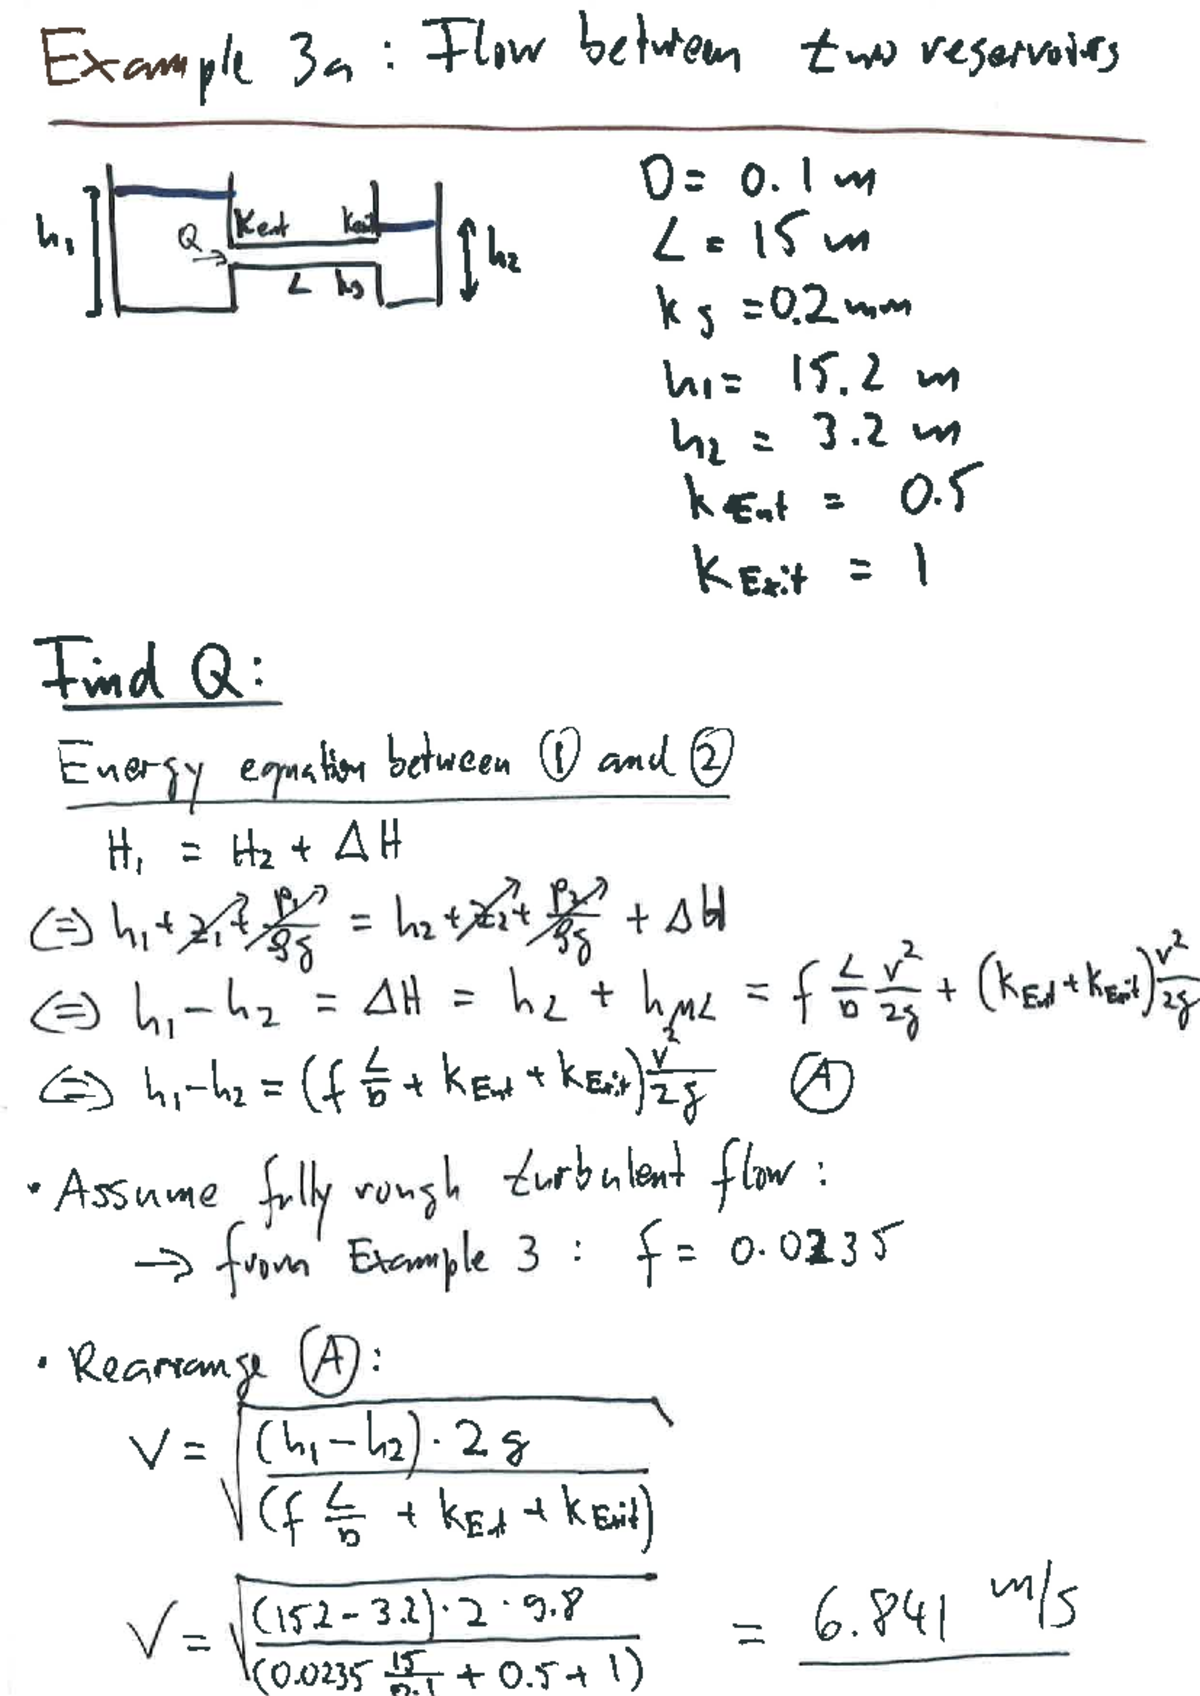 Example 3a: Flow between two reservoirs
h₁ Q Kent Kexit L ks h₂
D = 0.1 m
L = 15 m
ks = 0.2 mm
h₁ = 15.2 m
h₂ = 3.2 m
kEnt = 0.5
kExit = 1
Find Q:
Energy equation between ① and ②
H₁ = H₂ + ΔH
(=) h₁ + z₁ + p₁/ρg = h₂ + z₂ + p₂/ρg + ΔH
(=) h₁ - h₂ = ΔH = hL + hML = f L/D v²/2g + (kEnt + kExit) v²/2g
(=) h₁ - h₂ = (f L/D + kEnt + kExit) v²/2g Ⓐ
• Assume fully rough turbulent flow:
→ from Example 3: f = 0.0235
• Rearrange Ⓐ:
V = √((h₁ - h₂) · 2g / (f L/D + kEnt + kExit))
V = √((15.2 - 3.2) · 2 · 9.8 / (0.0235 15/0.1 + 0.5 + 1)) = 6.841 m/s